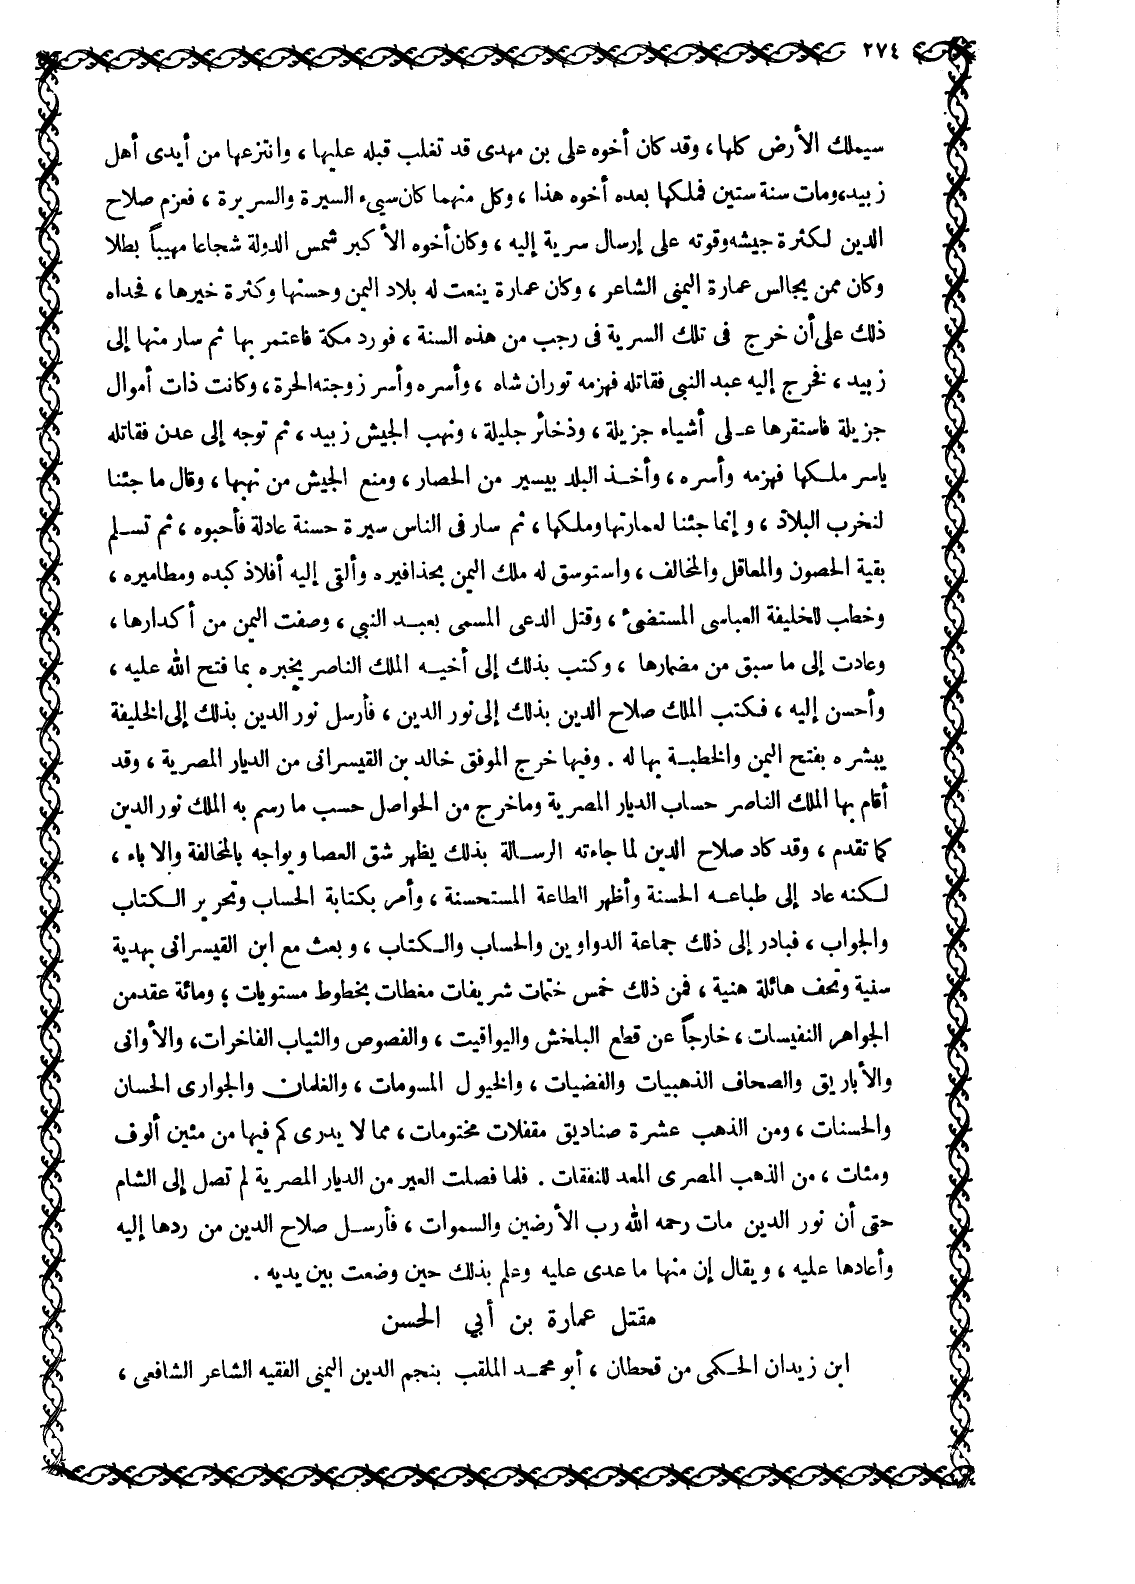 ٢٧٤
سيملك الأرض كلها، وقد كان أخوه على بن مهدى قد تغلب قبله عليها، وانتزعها من أيدى أهل
زبيد، ومات سنة ستين فملكها بعده أخوه هذا، وكل منهما كان سيىء السيرة والسريرة، فعزم صلاح
الدين لكثرة جيشه وقوته على إرسال سرية إليه، وكان أخوه الأكبر شمس الدولة شجاعا مهيباً بطلا
وكان ممن يجالس عمارة اليمنى الشاعر، وكان عمارة ينعت له بلاد اليمن وحسنها وكثرة خيرها، فحداه
ذلك على أن خرج فى تلك السرية فى رجب من هذه السنة، فورد مكة فاعتمر بها ثم سار منها إلى
زبيد، فخرج إليه عبد النبي فقاتله فهزمه توران شاه، وأسره وأسر زوجته الحرة، وكانت ذات أموال
جزيلة فاستقرها على أشياء جزيلة، وذخائر جليلة، ونهب الجيش زبيد، ثم توجه إلى عدن فقاتله
ياسر ملكها فهزمه وأسره، وأخذ البلد بيسير من الحصار، ومنع الجيش من نهبها، وقال ما جئنا
لنخرب البلاد، وإنما جئنا لعمارتها وملكها، ثم سار فى الناس سيرة حسنة عادلة فأحبوه، ثم تسلم
بقية الحصون والمعاقل والمخالف، واستوسق له ملك اليمن بحذافيره وألقى إليه أفلاذ كبده ومطاميره،
وخطب للخليفة العباسى المستضئ، وقتل الدعى المسمى بعبد النبي، وصفت اليمن من أكدارها،
وعادت إلى ما سبق من مضمارها، وكتب بذلك إلى أخيه الملك الناصر يخبره بما فتح الله عليه،
وأحسن إليه، فكتب الملك صلاح الدين بذلك إلى نور الدين، فأرسل نور الدين بذلك إلى الخليفة
يبشره بفتح اليمن والخطبة بها له. وفيها خرج الموفق خالد بن القيسرانى من الديار المصرية، وقد
أقام بها الملك الناصر حساب الديار المصرية وما خرج من الحواصل حسب ما رسم به الملك نور الدين
كما تقدم، وقد كاد صلاح الدين لما جاءته الرسالة بذلك يظهر شق العصا ويواجه بالمخالفة والاباء،
لكنه عاد إلى طباعه الحسنة وأظهر الطاعة المستحسنة، وأمر بكتابة الحساب وتحرير الكتاب
والجواب، فبادر إلى ذلك جماعة الدواوين والحساب والكتاب، وبعث مع ابن القيسرانى بهدية
سنية وتحف هائلة هنية، فمن ذلك خمس ختمات شريفات مغطات بخطوط مستويات؛ ومائة عقد من
الجواهر النفيسات، خارجاً عن قطع البلخش واليواقيت، والفصوص والثياب الفاخرات، والأوانى
والأباريق والصحاف الذهبيات والفضيات، والخيول المسومات، والغلمان والجوارى الحسان
والحسنات، ومن الذهب عشرة صناديق مقفلات مختومات، مما لا يدرى كم فيها من مئين ألوف
ومئات، من الذهب المصرى المعد للنفقات. فلما فصلت العير من الديار المصرية لم تصل إلى الشام
حتى أن نور الدين مات رحمه الله رب الأرضين والسموات، فأرسل صلاح الدين من ردها إليه
وأعادها عليه، ويقال إن منها ما عدى عليه وعلم بذلك حين وضعت بين يديه.
مقتل عمارة بن أبي الحسن
ابن زيدان الحكمى من قحطان، أبو محمد الملقب بنجم الدين اليمنى الفقيه الشاعر الشافعى،